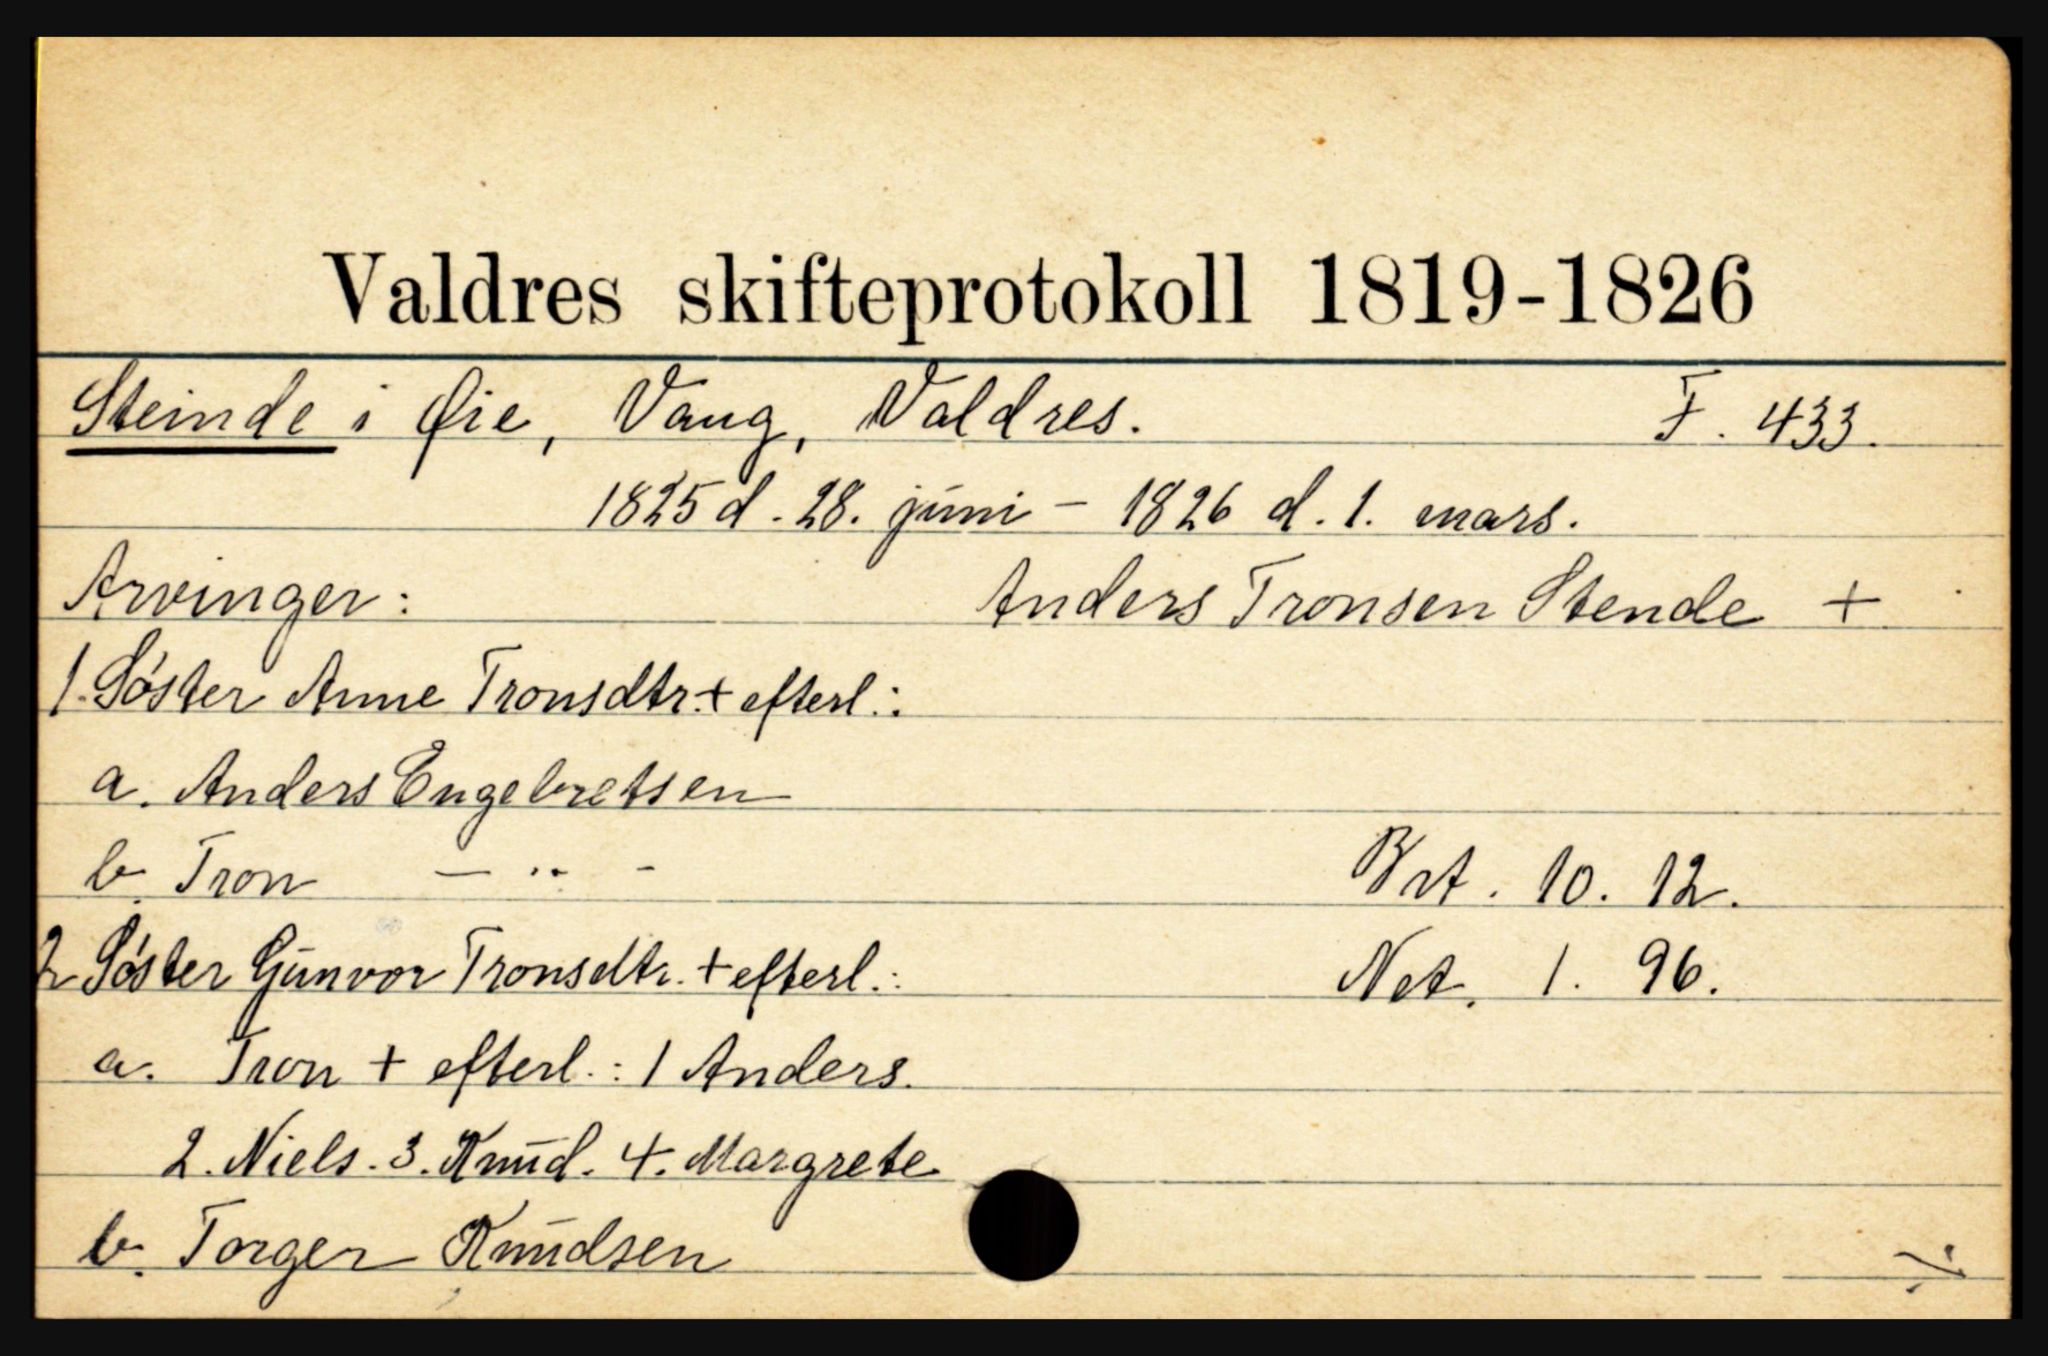 Valdres skifteprotokoll 1819-1826
Steinde i Øie, Vang, Valdres. F. 433.
1825 d. 28. juni - 1826 d. 1. mars.
Arvinger: Anders Tronsen Stende +
1. Søster Anne Tronsdtr. + efterl.:
a. Anders Engebretsen
b. Tron — " - Brt. 10. 12.
2 Søster Gunvor Tronsdtr. + efterl.: Net. 1. 96.
a. Tron + efterl.: 1 Anders.
2. Niels. 3. Knud. 4. Margrete
b. Torger Knudsen ./.